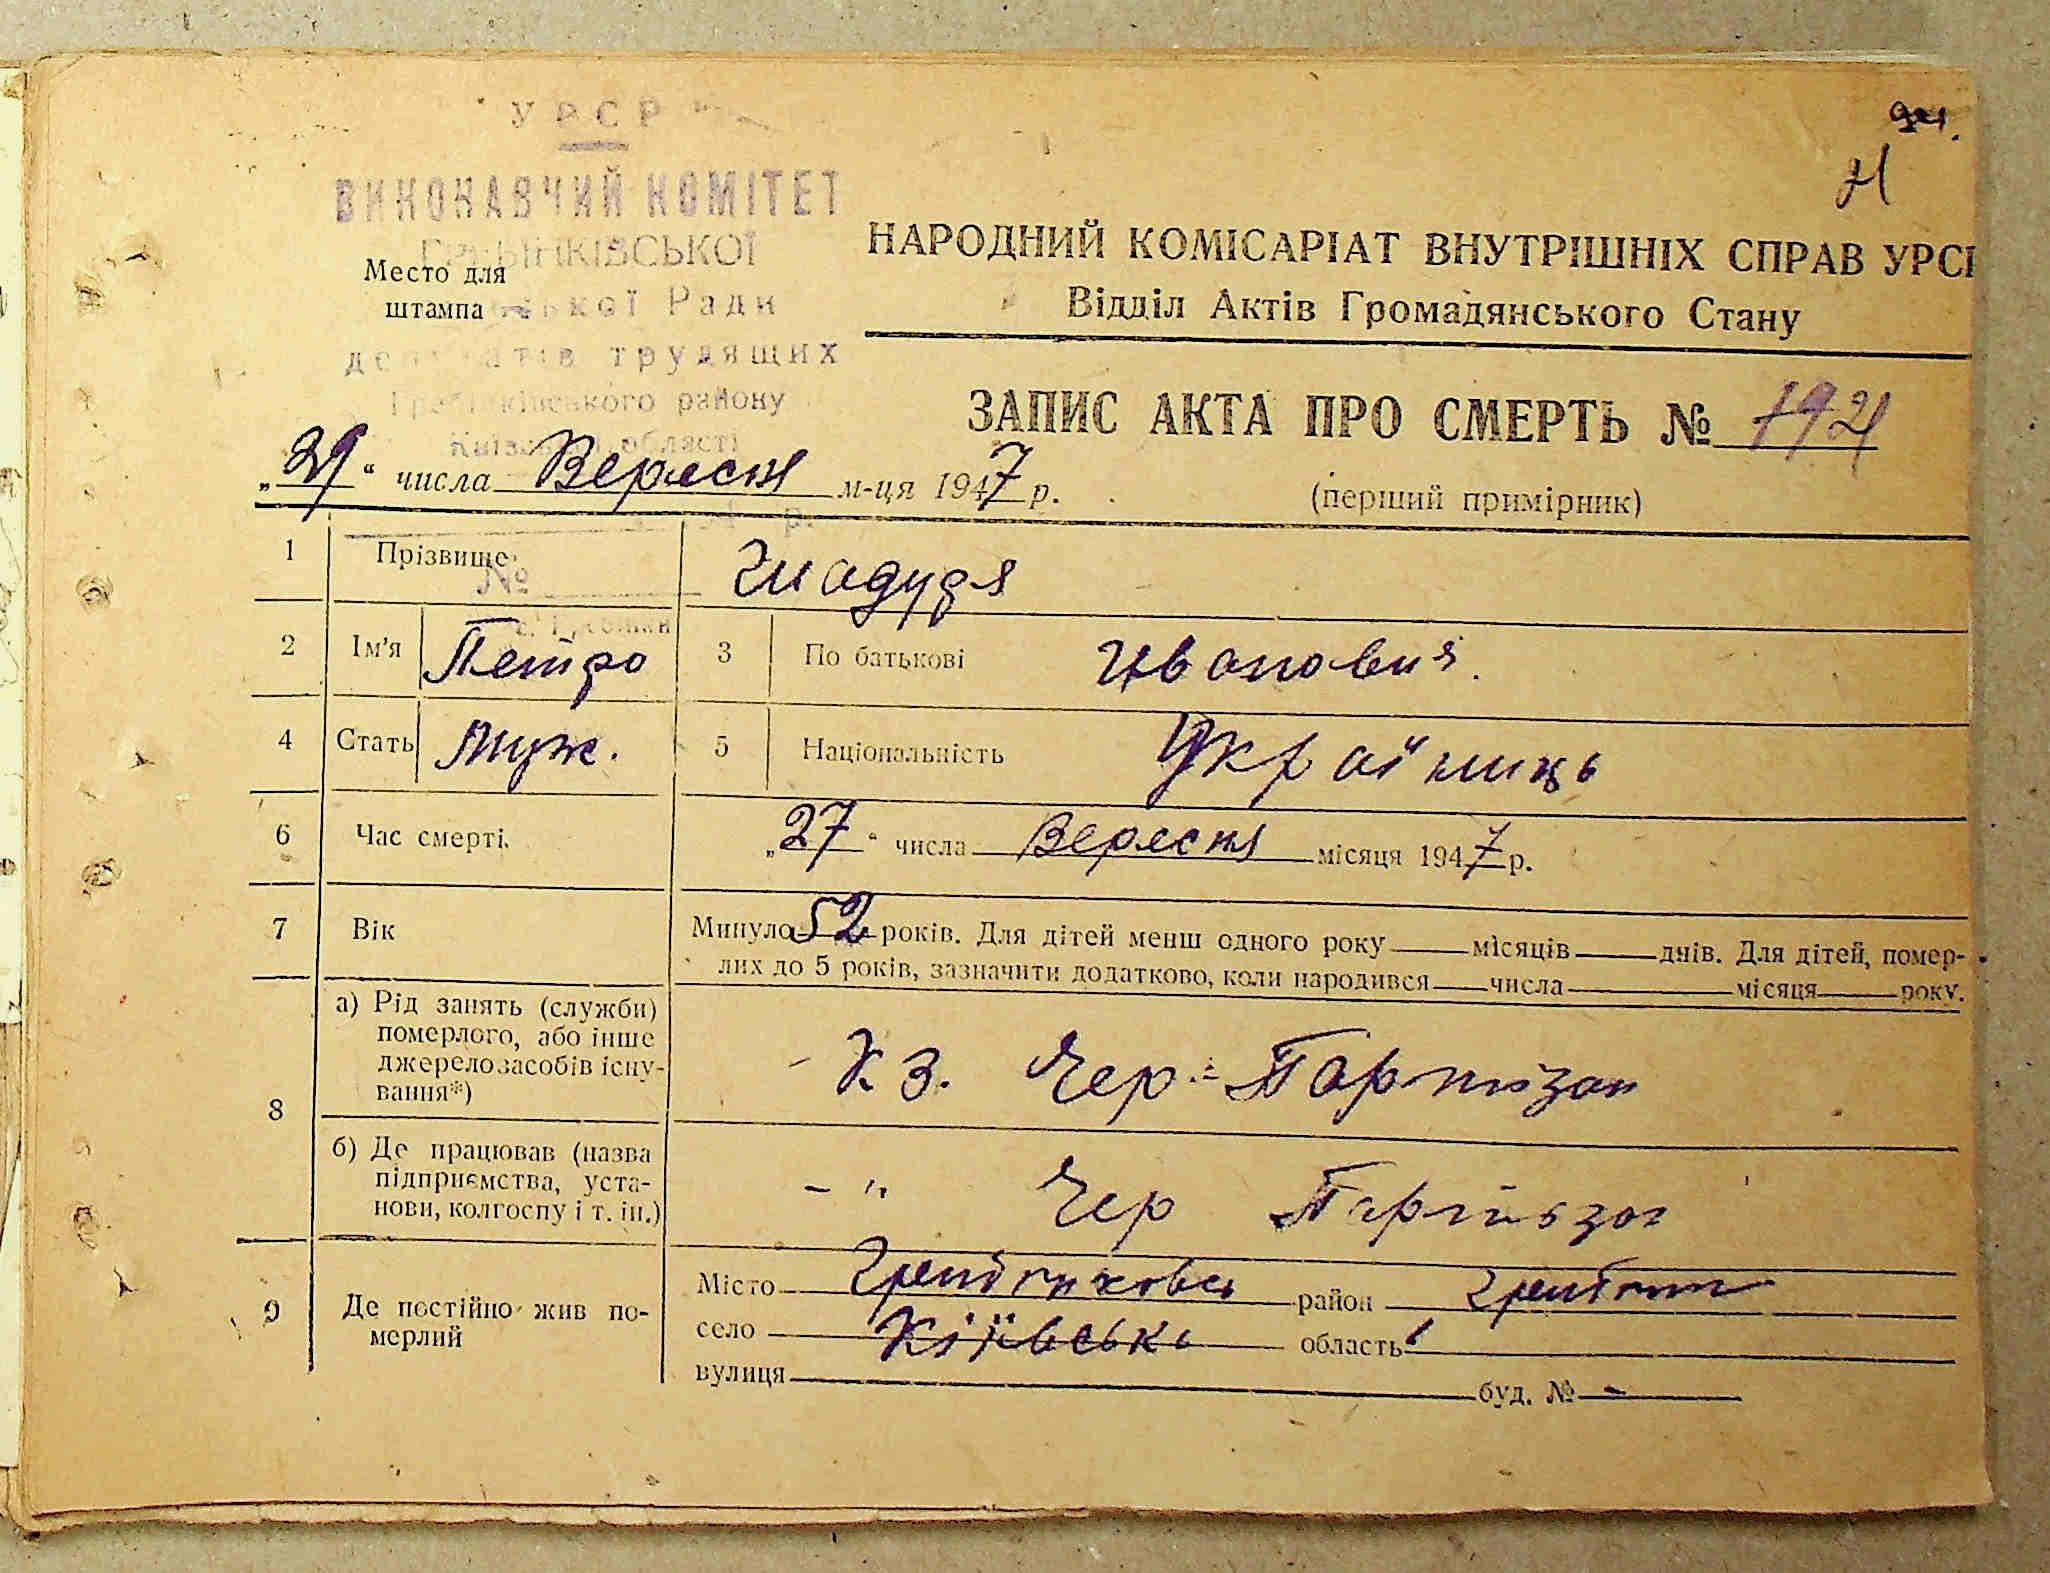 УРСР
ВИКОНАВЧИЙ КОМІТЕТ
ГРЕБІНКІВСЬКОЇ
Место для
штампа
Ради
депутатів трудящих
Гребінківського району
Київської області
71
НАРОДНИЙ КОМІСАРІАТ ВНУТРІШНІХ СПРАВ УРСР
Відділ Актів Громадянського Стану
ЗАПИС АКТА ПРО СМЕРТЬ №
„29“ числа Вересня м-ця 1947 р.
(перший примірник)
1 Прізвище
№
2 Ім'я Петро 3 По батькові Иванович.
4 Стать Муж. 5 Національність Українець
6 Час смерті. „27“ числа Вересня місяця 1947 р.
7 Вік Минуло 52 років. Для дітей менш одного року місяців днів. Для дітей, помер-
лих до 5 років, зазначити додатково, коли народився числа місяця року.
8 а) Рід занять (служби)
померлого, або інше
джерело засобів існу-
вання*)
- К з. Чер. Партизан
б) Де працював (назва
підприємства, уста-
нови, колгоспу і т. ін.)
- " Чер Партизан
9 Де постійно жив по-
мерлий
Місто район
село Київська область
вулиця буд. № -